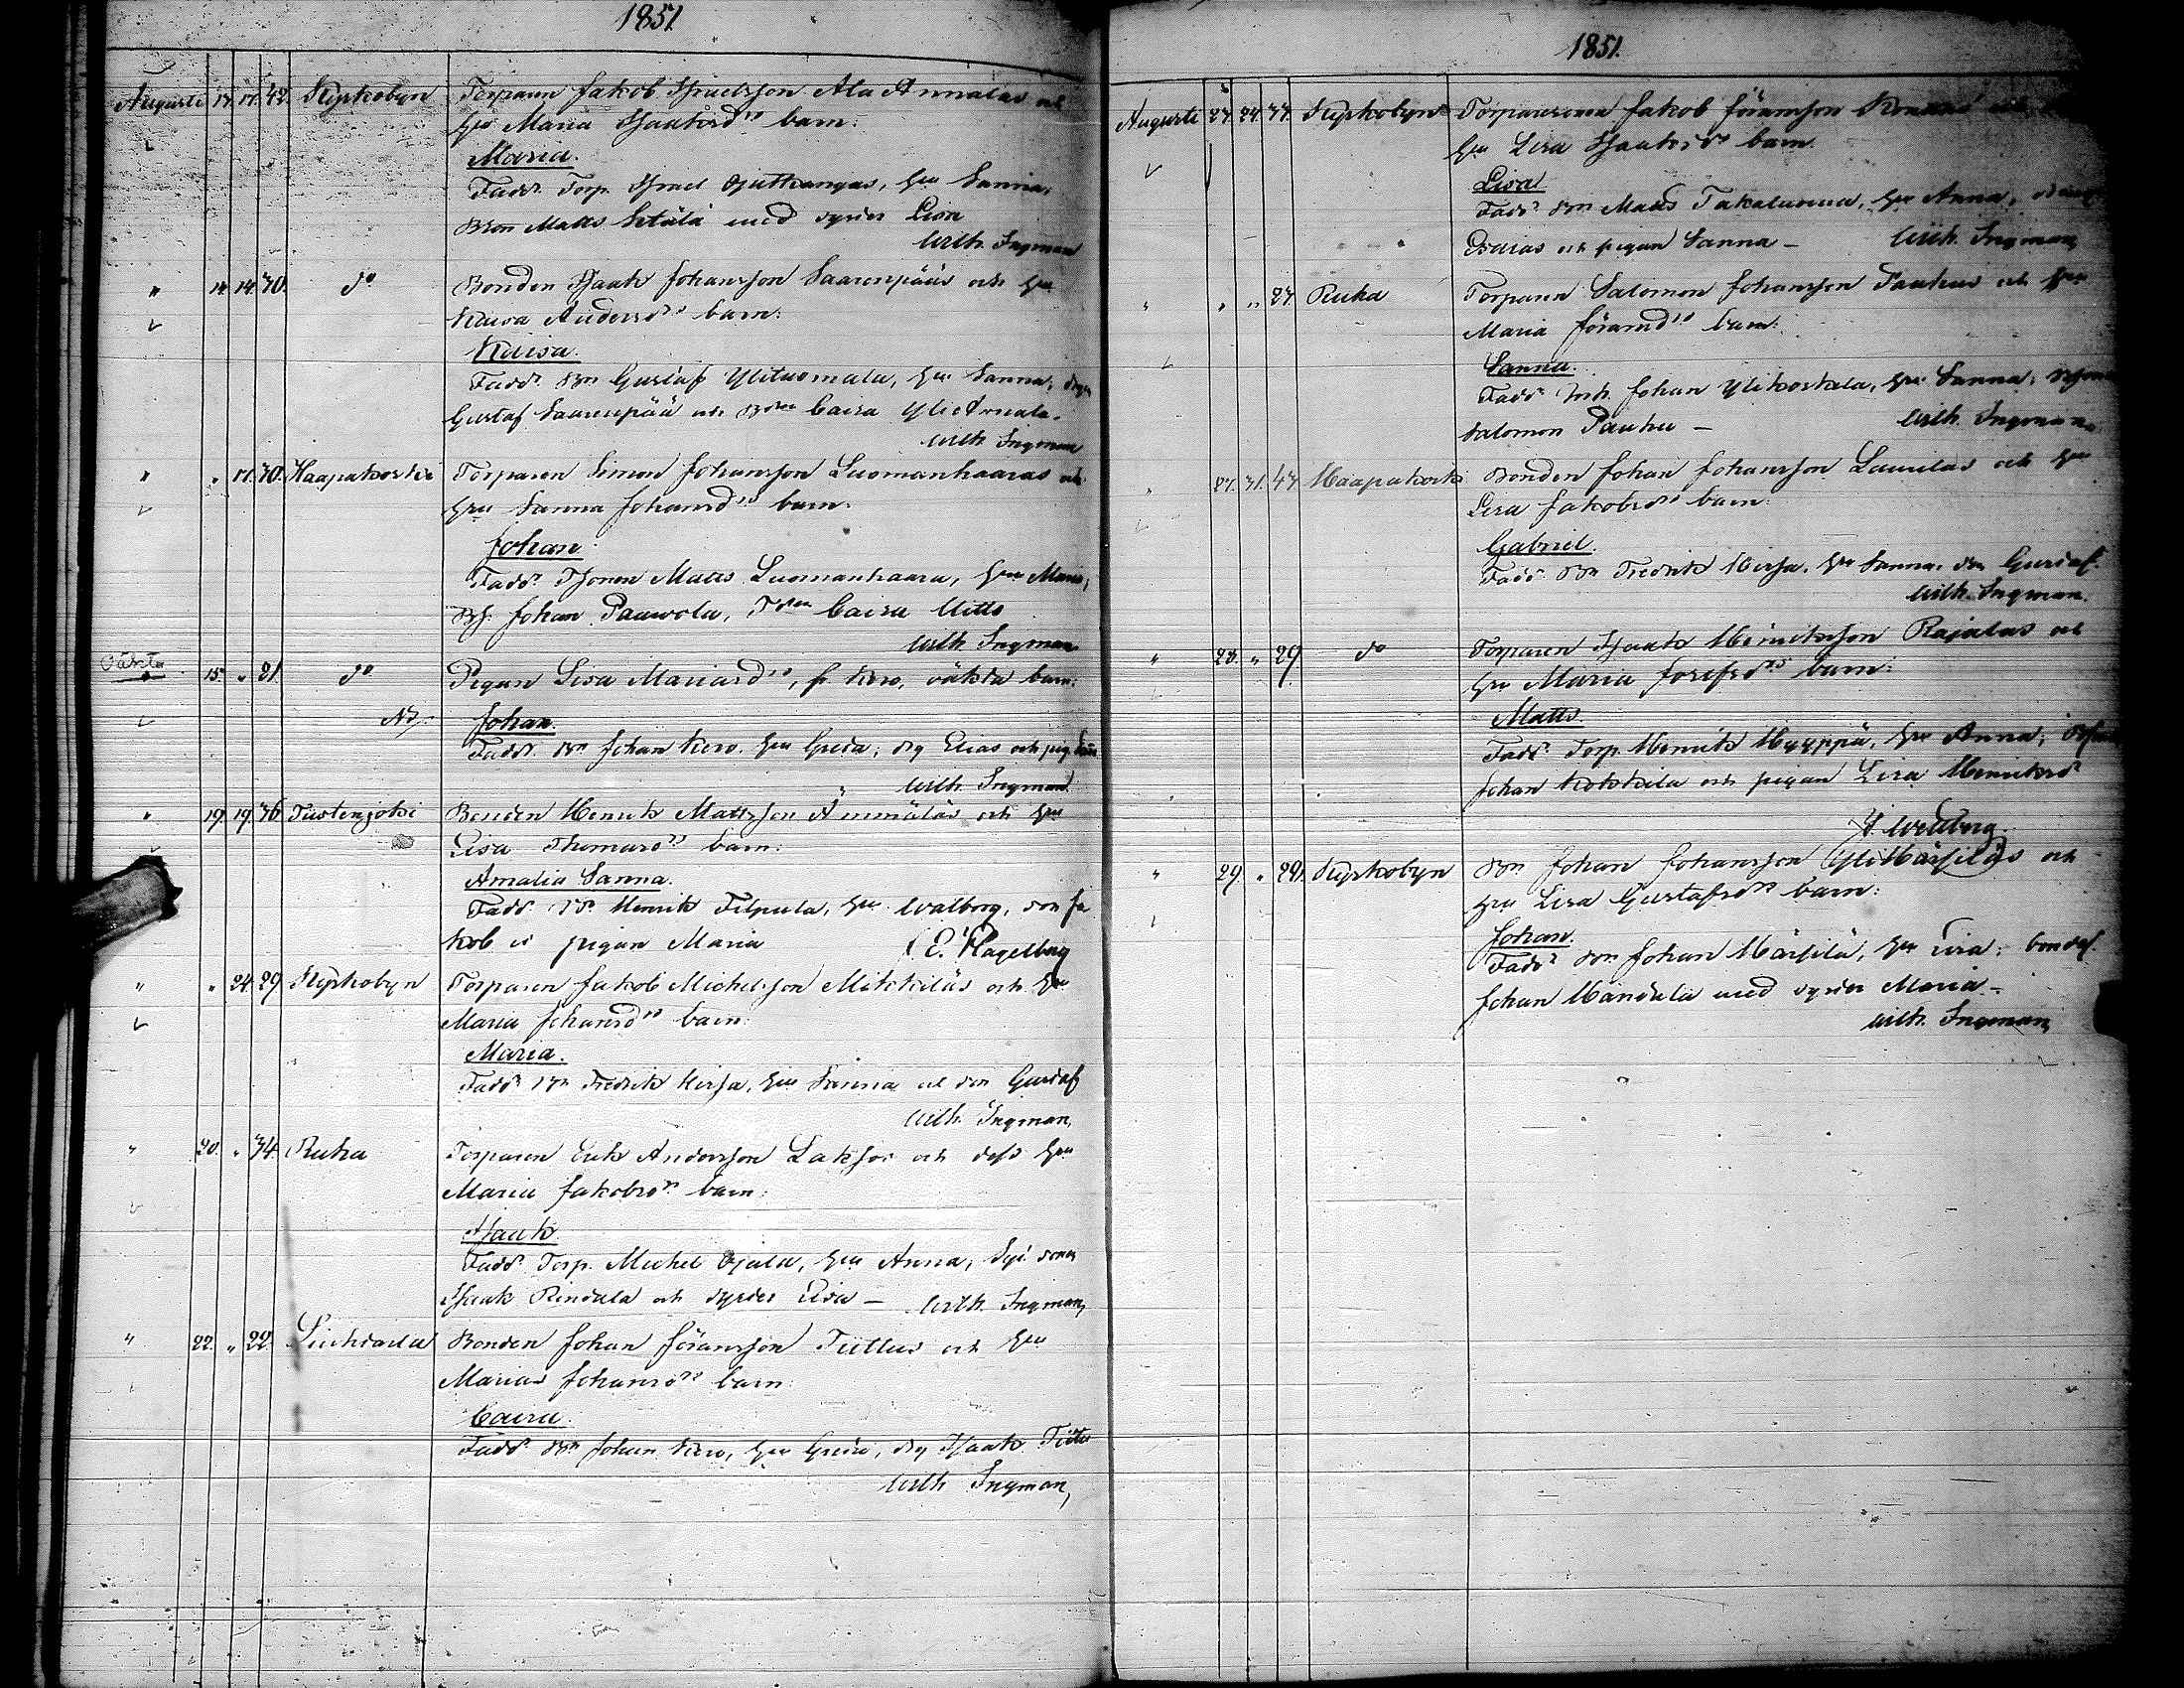 1851.
Augusti 13. 17. 42. Kyrkobyn Torparen Jakob Israelsson Ala Annalas och
hu Maria Isaaksd:rs barn:
Maria.
Fadd: Torp. Israel Ojutkangas, hu Sanna,
Bson Matts Setälä med syster Lisa
Wilh. Ingman
" 14. 14. 30. do Bonden Isaak Johansson Saarenpääs och hu
Kaisa Andersd:rs barn:
Kaisa.
Fadd: Bn Gustaf Ylituomala, hu Sanna, dryn
Gustaf Saarenpää och Caisa Yli Annala.
Wilh. Ingman
" " 17. 30. Haapakoski Torparen Simon Johansson Luomanhaaras och
hu Sanna Johansd:rs barn:
Johan.
Fadd: Matts Luomanhaara, hu Maria,
Johan Paawola, Caisa
Wilh. Ingman
Oäkta 15. " 21. do Pigan Lisa Mariasd:rs, fr. Kero, oäkta barn:
Johan.
Fadd: Bn Johan Kero, hu Greta, dry Elias och pig.
Wilh. Ingman
" 19. 19. 36. Tiistenjoki Bonden Henrik Mattsson Ämmäläs och hu
Lisa Thomasd:rs barn:
Amalia Sanna.
Fadd: Henrik Filpula, hu Walborg, son Ja
kob o pigan Maria C. E. Hagelberg
" " 24. 29. Kyrkobyn Torparen Jakob Michelsson Mikkiläs och hu
Maria Johansd:rs barn:
Maria.
Fadd: Bn Fredrik Hirfa, hu Sanna och son Gustaf
Wilh. Ingman,
" 20. " 34. Ruha Torparen Erik Andersson Laksos och dess hu
Maria Jakobsd:rs barn:
Isaak.
Fadd: Torp. Michel Ojala, hu Anna, sonen
Isaak Rindala och syster Lisa – Wilh. Ingman,
" 22. " 22. Liuhtari Bonden Johan Göransson Tiittus och hu
Marias Johansd:rs barn:
Caisa.
Fadd: Bn Johan Kero, hu Greta, dry Isaak Tiitu
Wilh Ingman,
1851.
Augusti 23. 24. 33. Kyrkobyn Torparesonen Jakob Göransson
hu Lisa Isaaksd:rs barn
Lisa
Fadd: Bn Matts Takaluoma, hu Anna,
Esaias och pigan Sanna – Wilh. Ingman,
" " " 23. Ruha Torparen Salomon Johansson Pauhus och hu
Maria Göransd:rs barn:
Sanna.
Fadd: Johan Ylikoskela, hu Sanna,
Salomon Pauhu – Wilh. Ingman
" 27. 31. 43. Haapakoski Bonden Johan Johansson Laurilas och hu
Lisa Jakobsd:rs barn:
Gabriel.
Fadd: Bn Fredrik Hirfa, hu Sanna, son Gustaf.
Wilh. Ingman.
" 28. " 29. do Torparen Isaak Henriksson Rajalas och
hu Maria Josefsd:rs barn:
Matts.
Fadd: Torp. Henrik Hyyppä, hu Anna,
Johan Kokkila och pigan Lisa Henriksd:
Wellberg.
" 29. " 29. Kyrkobyn Bn Johan Johansson Yli Härsiläs och
hu Lisa Gustafsd:rs barn:
Johan.
Fadd: Bon Johan Härsilä, hu Lisa, bondes.
Johan Handula med syster Maria –
Wilh. Ingman,